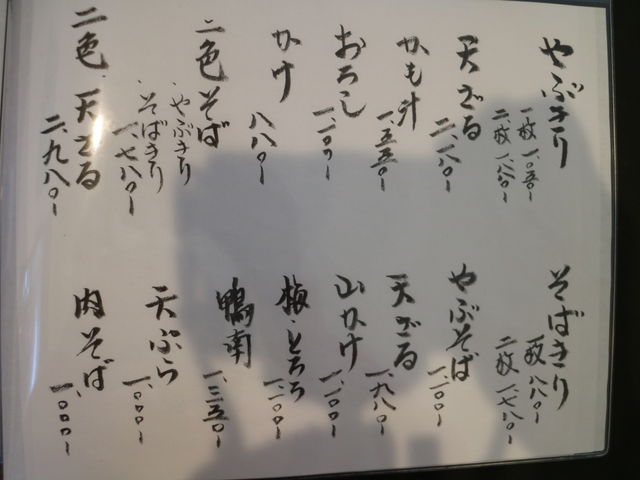 やぶきり
一枚 一、〇五〇ー
二枚 一、八八〇ー
天ざる
二、一八〇ー
かも汁
一、五五〇ー
おろし
一、一〇〇ー
かけ
八八〇ー
二色そば
・やぶきり
・そばきり
一、七八〇ー
二色 天ざる
二、九八〇ー
そばきり
一枚 八八〇ー
二枚 一、七八〇ー
やぶそば
一、一〇〇ー
天ざる
一、九八〇ー
山かけ
一、一〇〇ー
梅・とろろ
一、一〇〇ー
鴨南
一、三五〇ー
天ぷら
一、〇〇〇ー
肉そば
一、〇〇〇ー